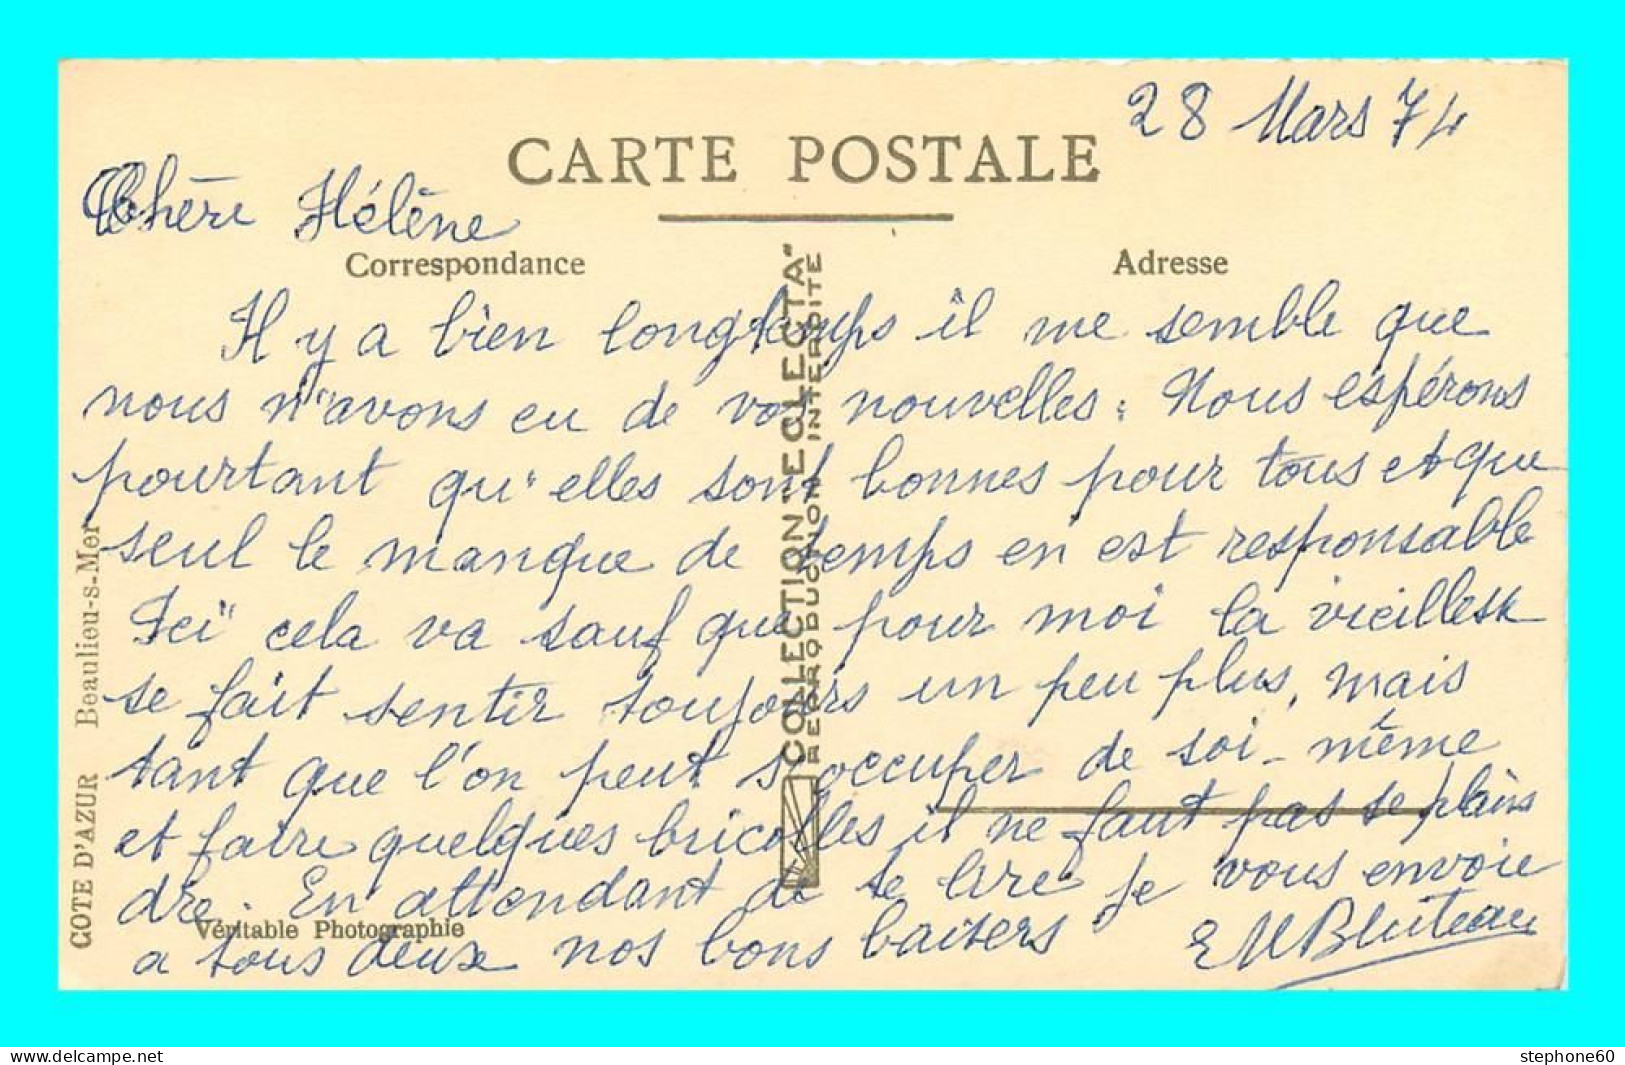 28 Mars 74
CARTE POSTALE
Chère Hélène
Correspondance
Adresse
Il y a bien longtemps il me semble que
nous n'avons eu de vos nouvelles. Nous espérons
pourtant qu'elles sont bonnes pour tous et que
seul le manque de temps en est responsable
Ici cela va sauf que pour moi la vieillesse
se fait sentir toujours un peu plus, mais
tant que l'on peut s'occuper de soi-même
et faire quelques bricolles il ne faut pas se plain
dre. En attendant de te lire je vous envoie
a tous deux nos bons baisers
EMBluteau
Véritable Photographie
COTE D'AZUR Beaulieu-s-Mer
COLLECTION "ECLECTA"
REPRODUCTION INTERDITE
www.delcampe.net
stephone60